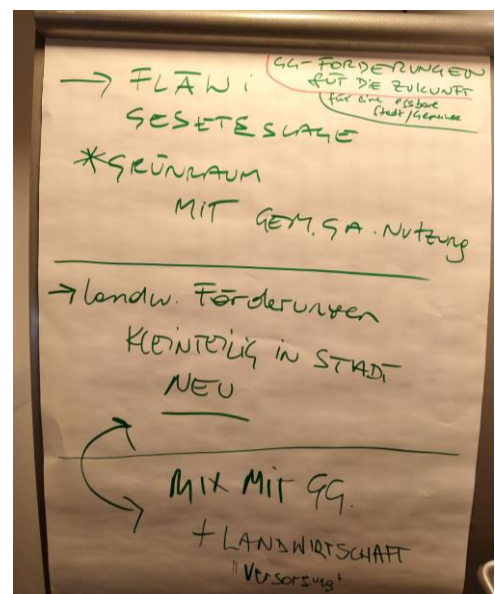 GG-FORDERUNGEN
FÜR DIE ZUKUNFT
für eine essbare
Stadt/Gemeinde
→ FLÄWI
GESETESLAGE
*GRÜNRAUM
MIT GEM.GA.NUTZUNG
→ landw. Förderungen
KLEINTEILIG IN STADT
NEU
MIX MIT GG.
+ LANDWIRTSCHAFT
"Versorgung"